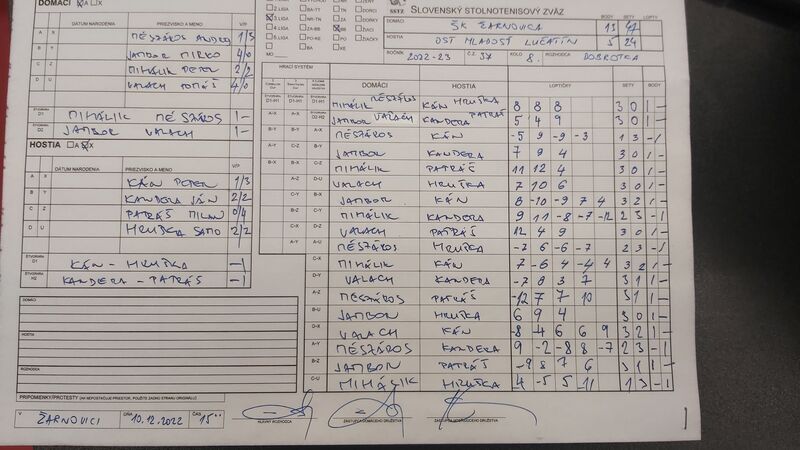 DOMÁCI A X
DÁTUM NARODENIA PRIEZVISKO A MENO V/P
A X MÉSZÁROS ANDREJ 1/3
B Y JAMBOR MIRKO 4/0
C Z MIHÁLIK PETER 2/2
D U VALACH TOMÁŠ 4/0
D1 MIHÁLIK MÉSZÁROS 1-
D2 JAMBOR VALACH 1-
HOSTIA A X
DÁTUM NARODENIA PRIEZVISKO A MENO V/P
A X KÁN PETER 1/3
B Y KANDERA JÁN 2/2
C Z PATRÁŠ MILAN 0/4
D U HRUŠKA SAMO 2/2
KÁN - HRUŠKA -1
H2 KANDERA - PATRÁŠ -1
DOMÁCI
HOSTIA
ROZHODCA
PRIPOMIENKY/PROTESTY
V ŽARNOVICI DŇA 10.12.2022 ČAS 15°°
HLAVNÝ ROZHODCA
SSTZ SLOVENSKÝ STOLNOTENISOVÝ ZVÄZ
2.LIGA BA-TT
3.LIGA NR-TN
4.LIGA ZA-BB
5.LIGA PO-KE
DOMÁCI ŠK ŽARNOVICA BODY 13 SETY 47 LOPTY
HOSTIA OŠT MLADOSŤ LUČATÍN 5 24
ROČNÍK 2022-23 Č.Z. 37 KOLO 8. ROZHODCA DOBROTKA
HRACÍ SYSTÉM
DOMÁCI HOSTIA LOPTIČKY SETY BODY
MIHÁLIK MÉSZÁROS KÁN HRUŠKA 8 8 8 3 0 1 -
JAMBOR VALACH KANDERA PATRÁŠ 5 4 9 3 0 1 -
MÉSZÁROS KÁN -5 9 -9 -3 1 3 -1
JAMBOR KANDERA 7 9 4 3 0 1 -
MIHÁLIK PATRÁŠ 11 12 4 3 0 1 -
VALACH HRUŠKA 7 10 6 3 0 1 -
JAMBOR KÁN 8 -10 -9 7 4 3 2 1 -
MIHÁLIK KANDERA 9 11 -8 -7 -12 2 3 -1
VALACH PATRÁŠ 12 4 9 3 0 1 -
MÉSZÁROS HRUŠKA -7 6 -6 -7 2 3 -1
MIHÁLIK KÁN -7 -6 4 -4 4 3 2 1 -
VALACH KANDERA -7 8 3 7 3 1 1 -
MÉSZÁROS PATRÁŠ -12 7 7 10 3 1 1 -
JAMBOR HRUŠKA 6 9 4 3 0 1 -
VALACH KÁN -8 4 6 6 9 3 2 1 -
MÉSZÁROS KANDERA 9 -2 -8 8 -7 2 3 -1
JAMBOR PATRÁŠ -9 8 7 6 3 1 1 -
MIHÁLIK HRUŠKA 4 -5 5 -11 1 3 -1